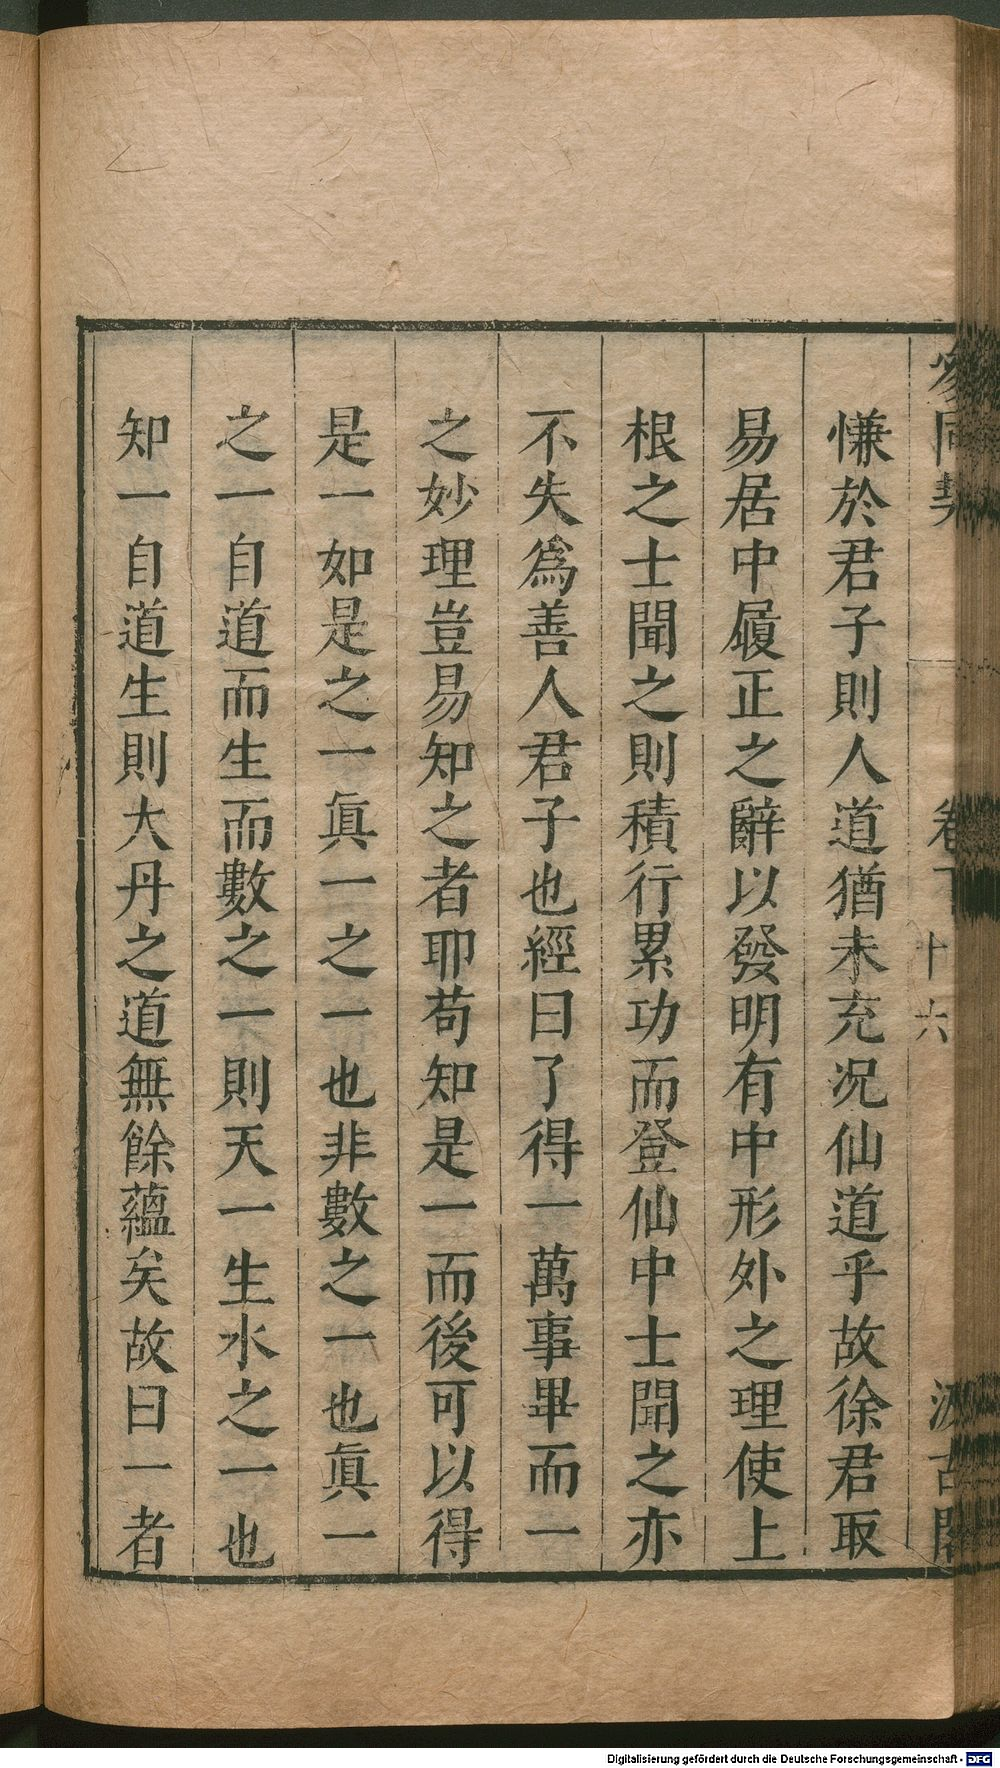 參同契 卷下 十六 汲古閣
慊於君子則人道猶未充况仙道乎故徐君取
易居中履正之辭以發明有中形外之理使上
根之士聞之則積行累功而登仙中士聞之亦
不失爲善人君子也經曰了得一萬事畢而一
之妙理豈易知之者耶苟知是一而後可以得
是一如是之一眞一之一也非數之一也眞一
之一自道而生而數之一則天一生水之一也
知一自道生則大丹之道無餘蘊矣故曰一者
Digitalisierung gefördert durch die Deutsche Forschungsgemeinschaft - DFG